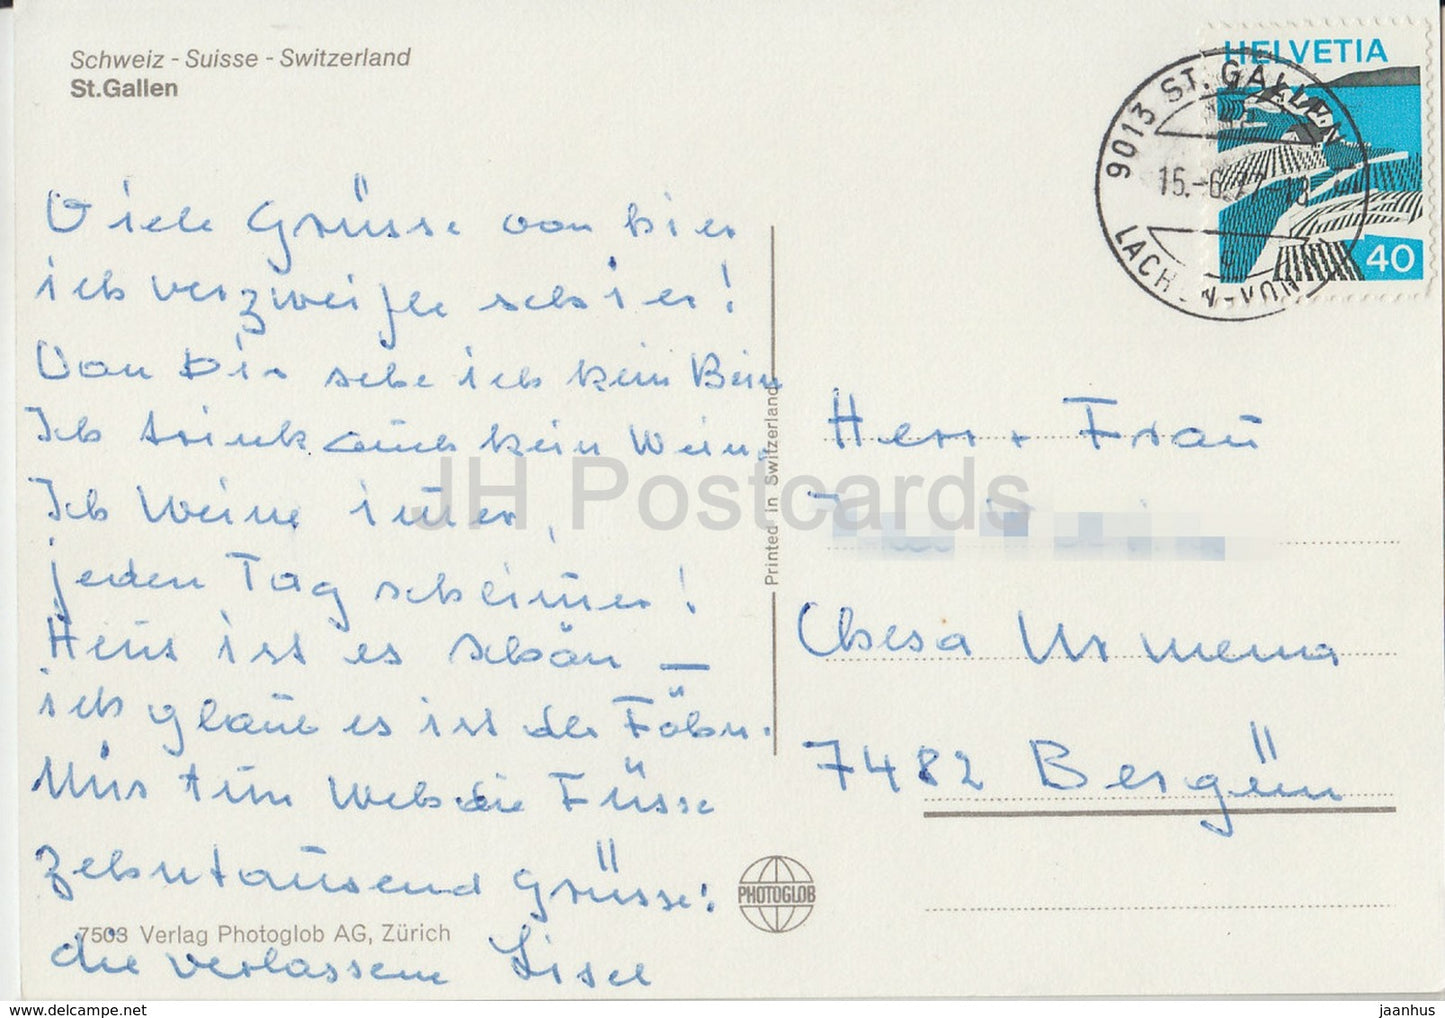 Schweiz - Suisse - Switzerland
St.Gallen
HELVETIA
40
9013 ST. GALLEN
15.-6.77-18
LACHEN-VON
Viele Grüsse von hier
ich verzweifle schier!
Von hir sehe ich kein Bein
Ich trink auch kein Wein.
Ich weine imer,
jeden Tag schlimer!
Heut ist es schön —
ich glaub es ist der Föhn.
Mir tun weh die Füsse
zehntausend Grüsse:
die verlassene Lisel
Herr + Frau
Chesa Ursmema
7482 Bergün
Printed in Switzerland
PHOTOGLOB
7503 Verlag Photoglob AG, Zürich
JH Postcards
hip-postcard.com
jaanhus